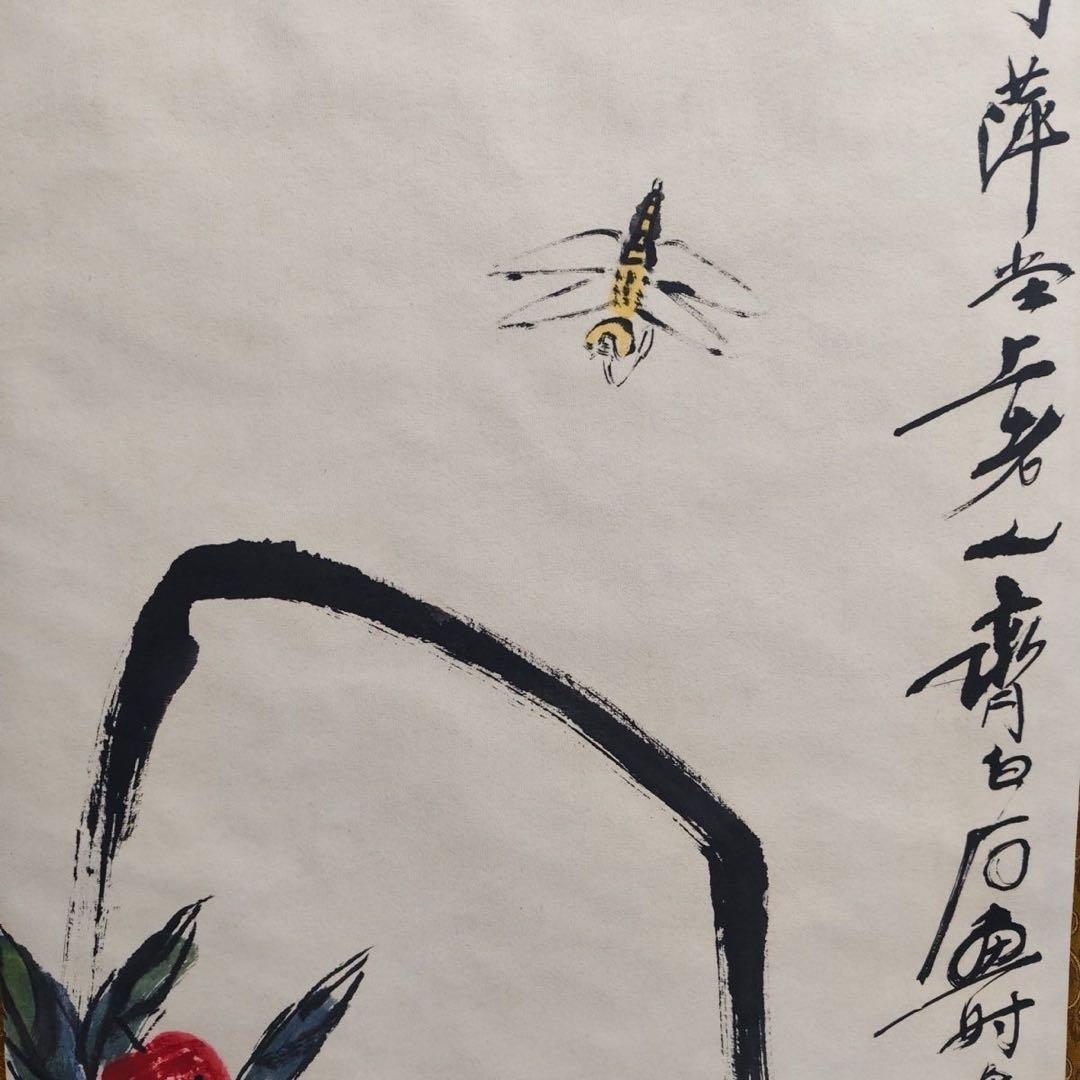 萍堂上老人齊白石画时